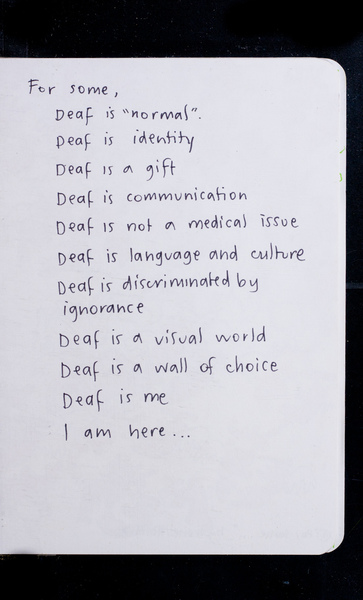 For some,
Deaf is "normal".
Deaf is identity
Deaf is a gift
Deaf is communication
Deaf is not a medical issue
Deaf is language and culture
Deaf is discriminated by
ignorance
Deaf is a visual world
Deaf is a wall of choice
Deaf is me
I am here...